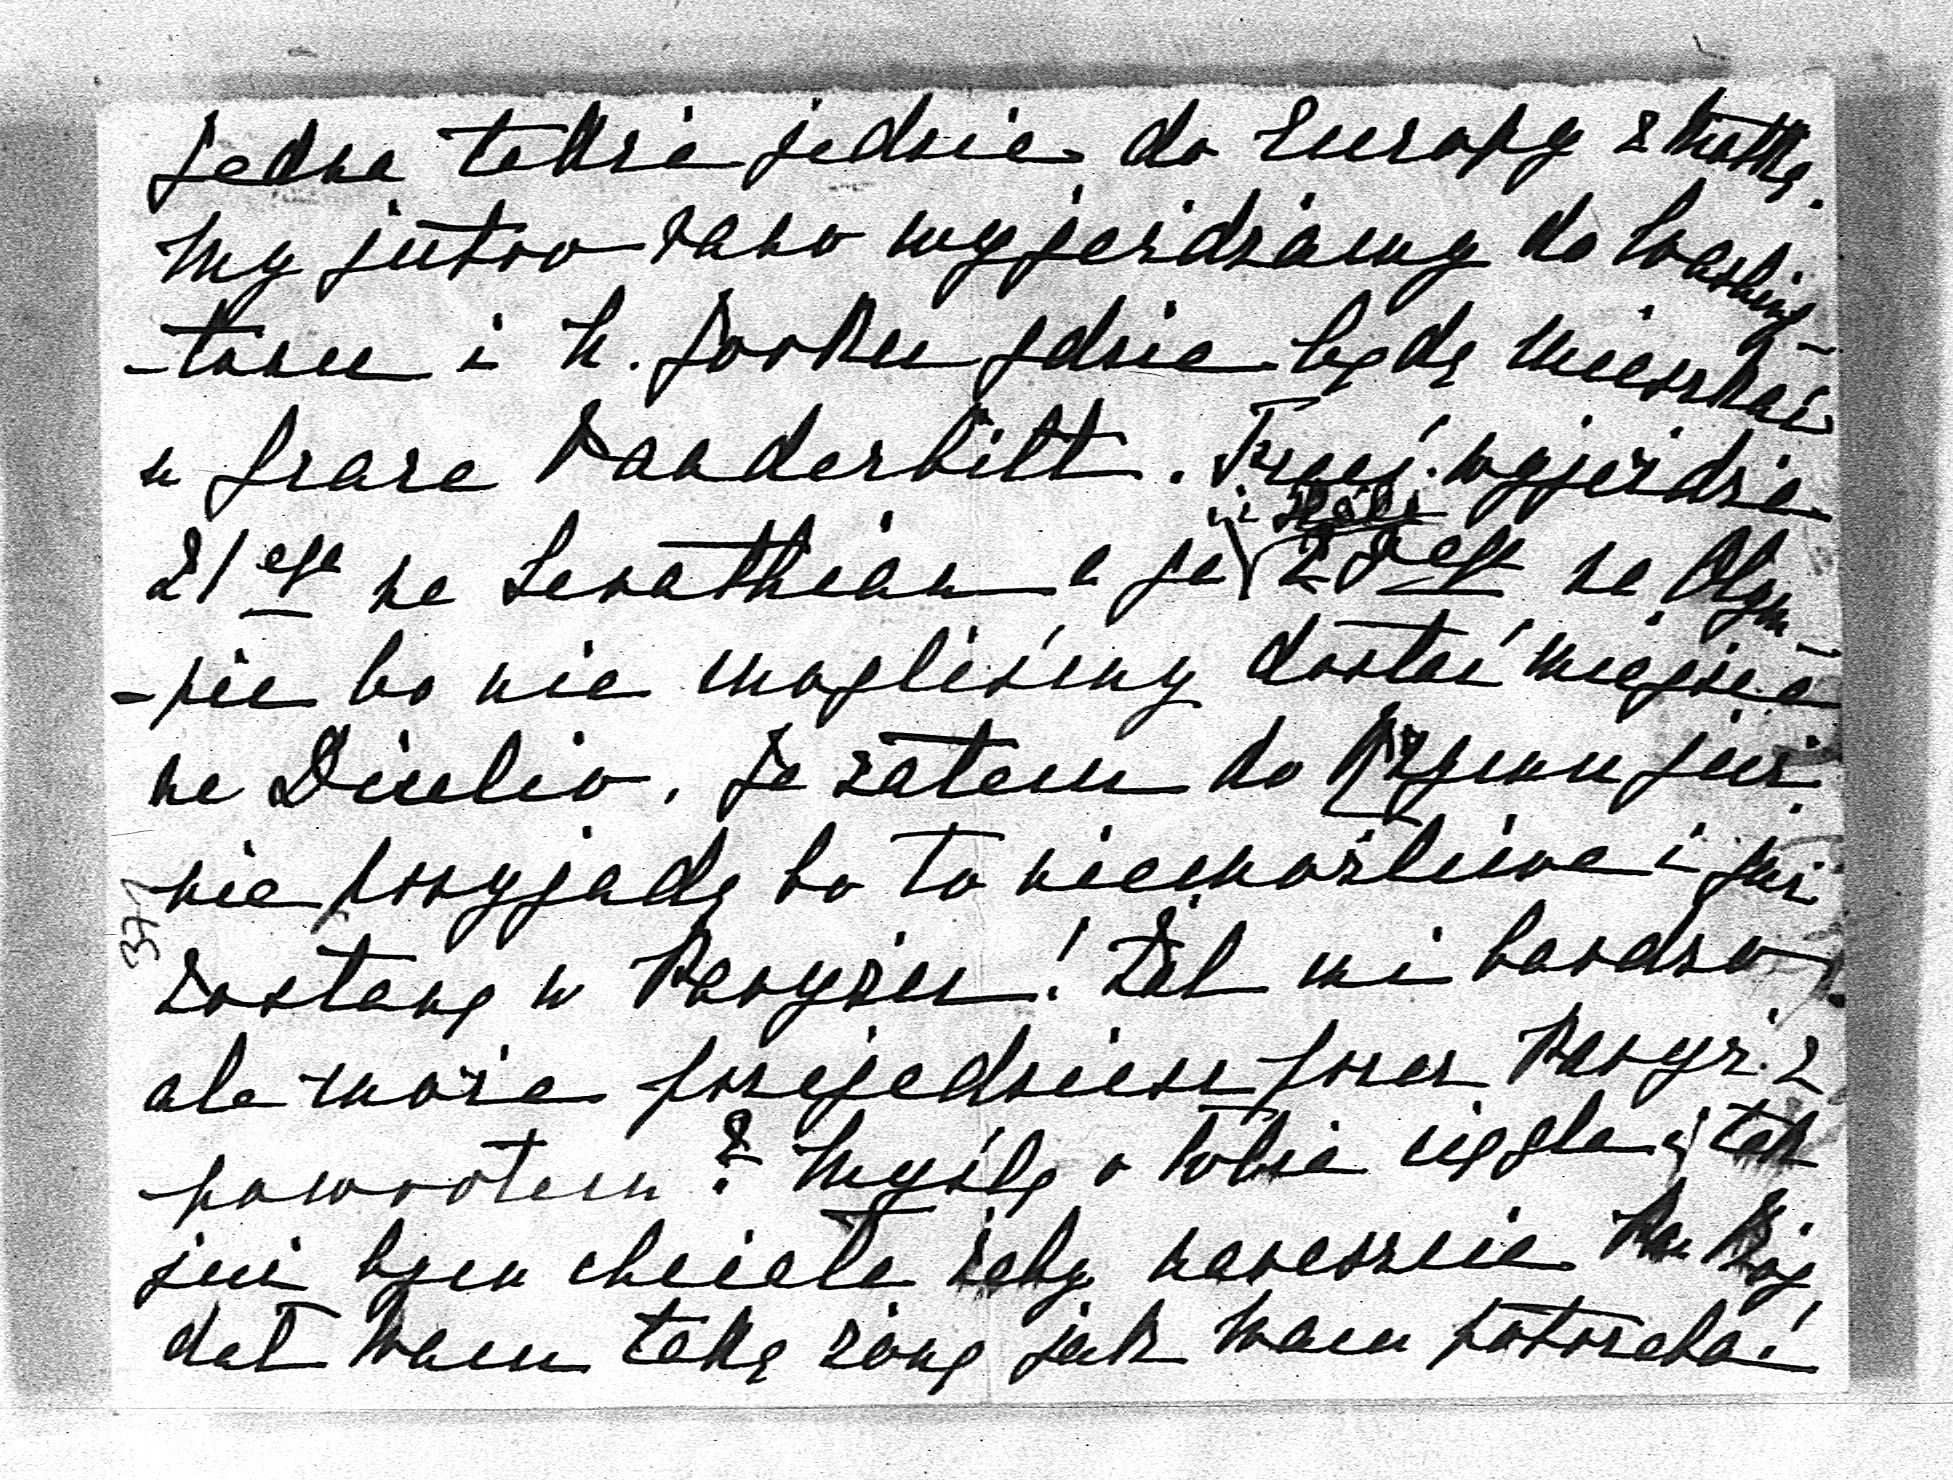 Jedna także jedzie do Europy z Matką.
My jutro rano wyjeżdżamy do Washing-
-tonu i N. Yorku gdzie będę mieszkać
u Grace Vanderbilt. wyjeżdża
21ego na Levathian a ja 28ego na Olym-
-pic bo nie mogliśmy dostać miejsca
na Duilio. Ja zatem do Rzymu już
nie przyjadę bo to niemożliwe i już
zostanę w Paryżu! Żal mi bardzo
ale może przejedziesz przez Paryż z
powrotem? Myślę o Tobie ciągle i tak
już bym chciała żeby nareszcie Pan Bóg
dał Wam taką żonę jak Wam potrzeba!
377